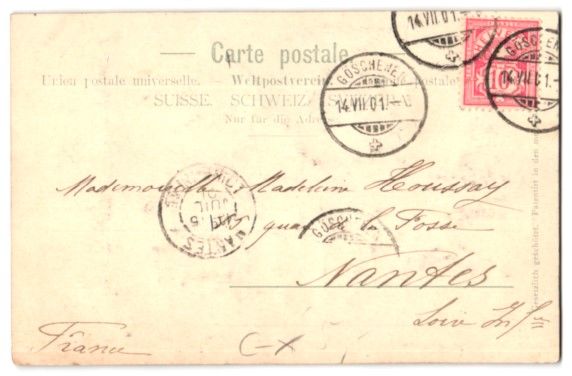 Carte postale.
Union postale universelle. — Weltpostverein postale
SUISSE. SCHWEIZ.
Nur für die Adre
GÖSCHENEN
14.VII.01.
14.VII.01.
GÖSCHENEN
14.VII.01.
10
Mademoiselle Madeleine Houssay
quai de la Fosse
GÖSCHE
NANTES
JUIL
Nantes
Loire Inf
France
C-X
gesetzlich geschützt. Patentirt in den